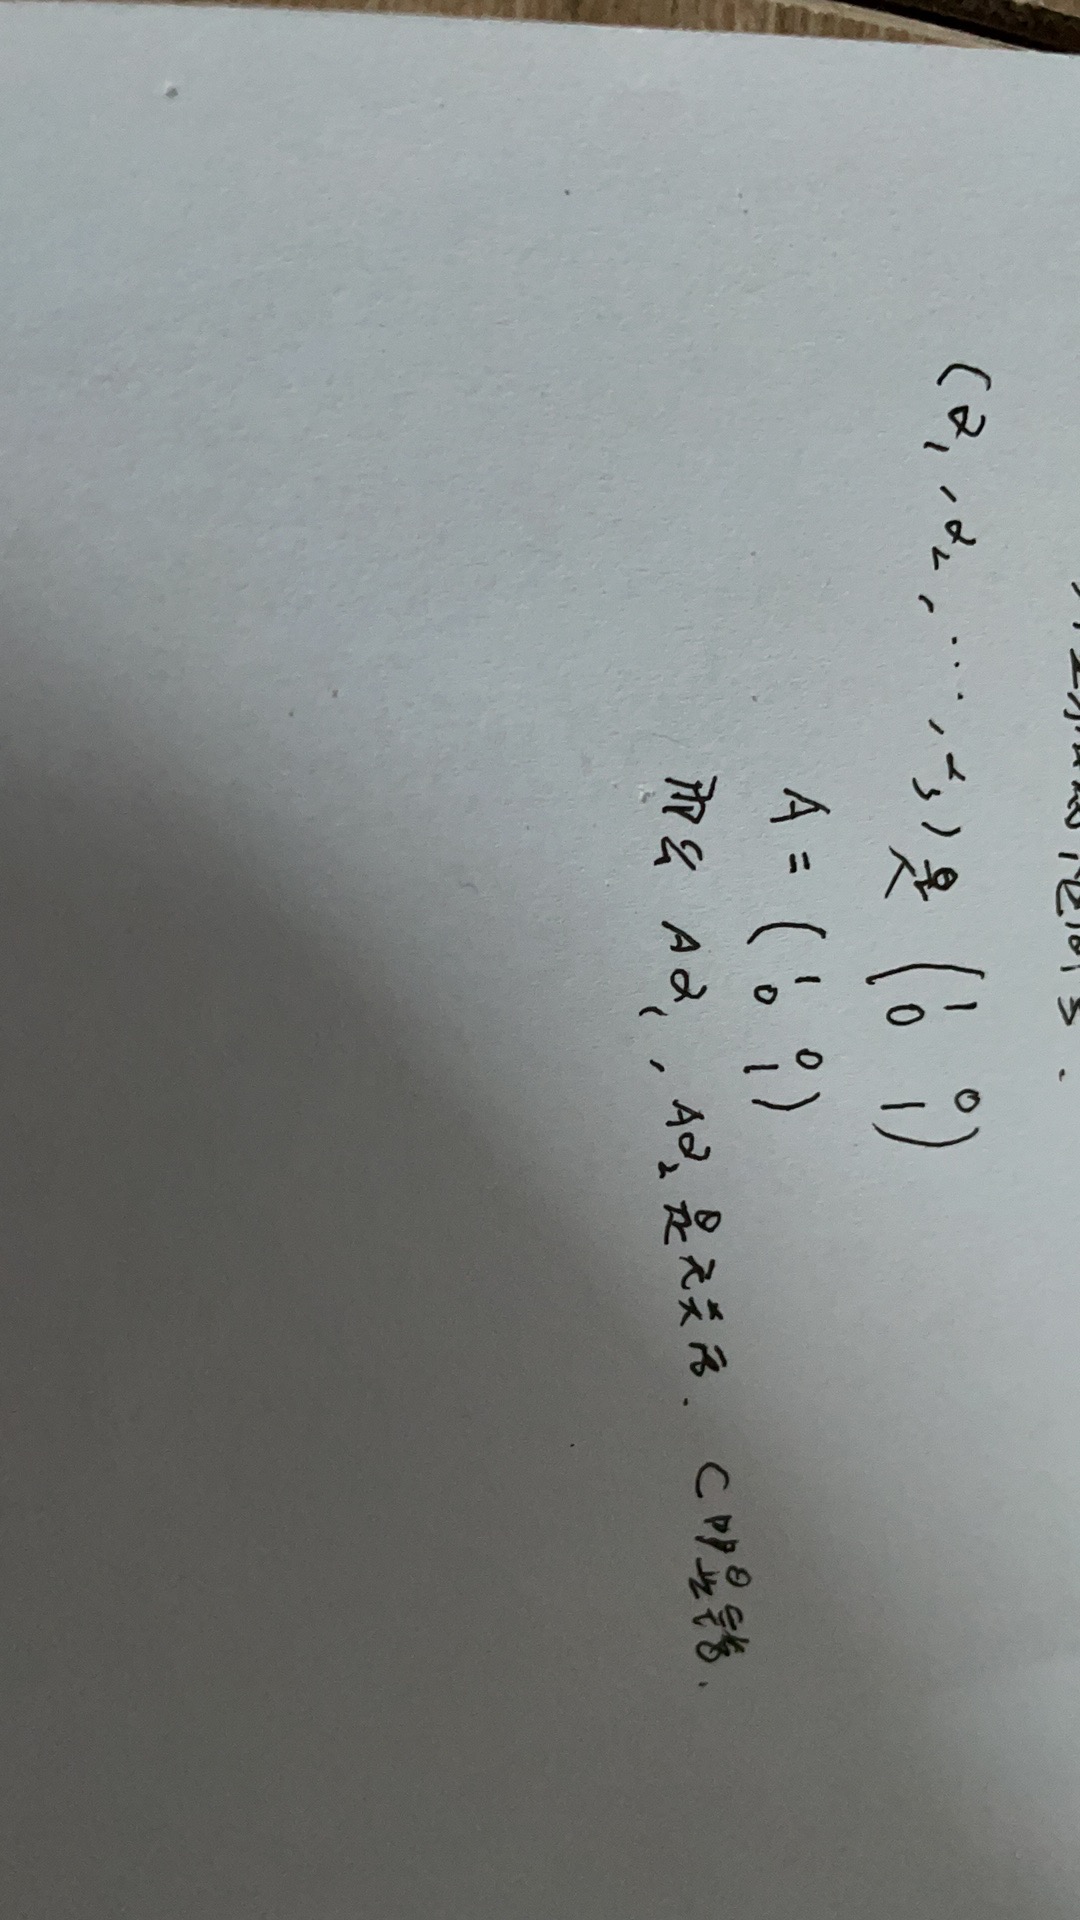 (α₁, α₂, ⋯, αₛ) 是 (1 0
0 1)
A = (1 0
0 1)
那么 Aα₁, Aα₂ 是无关的. C 明显错.